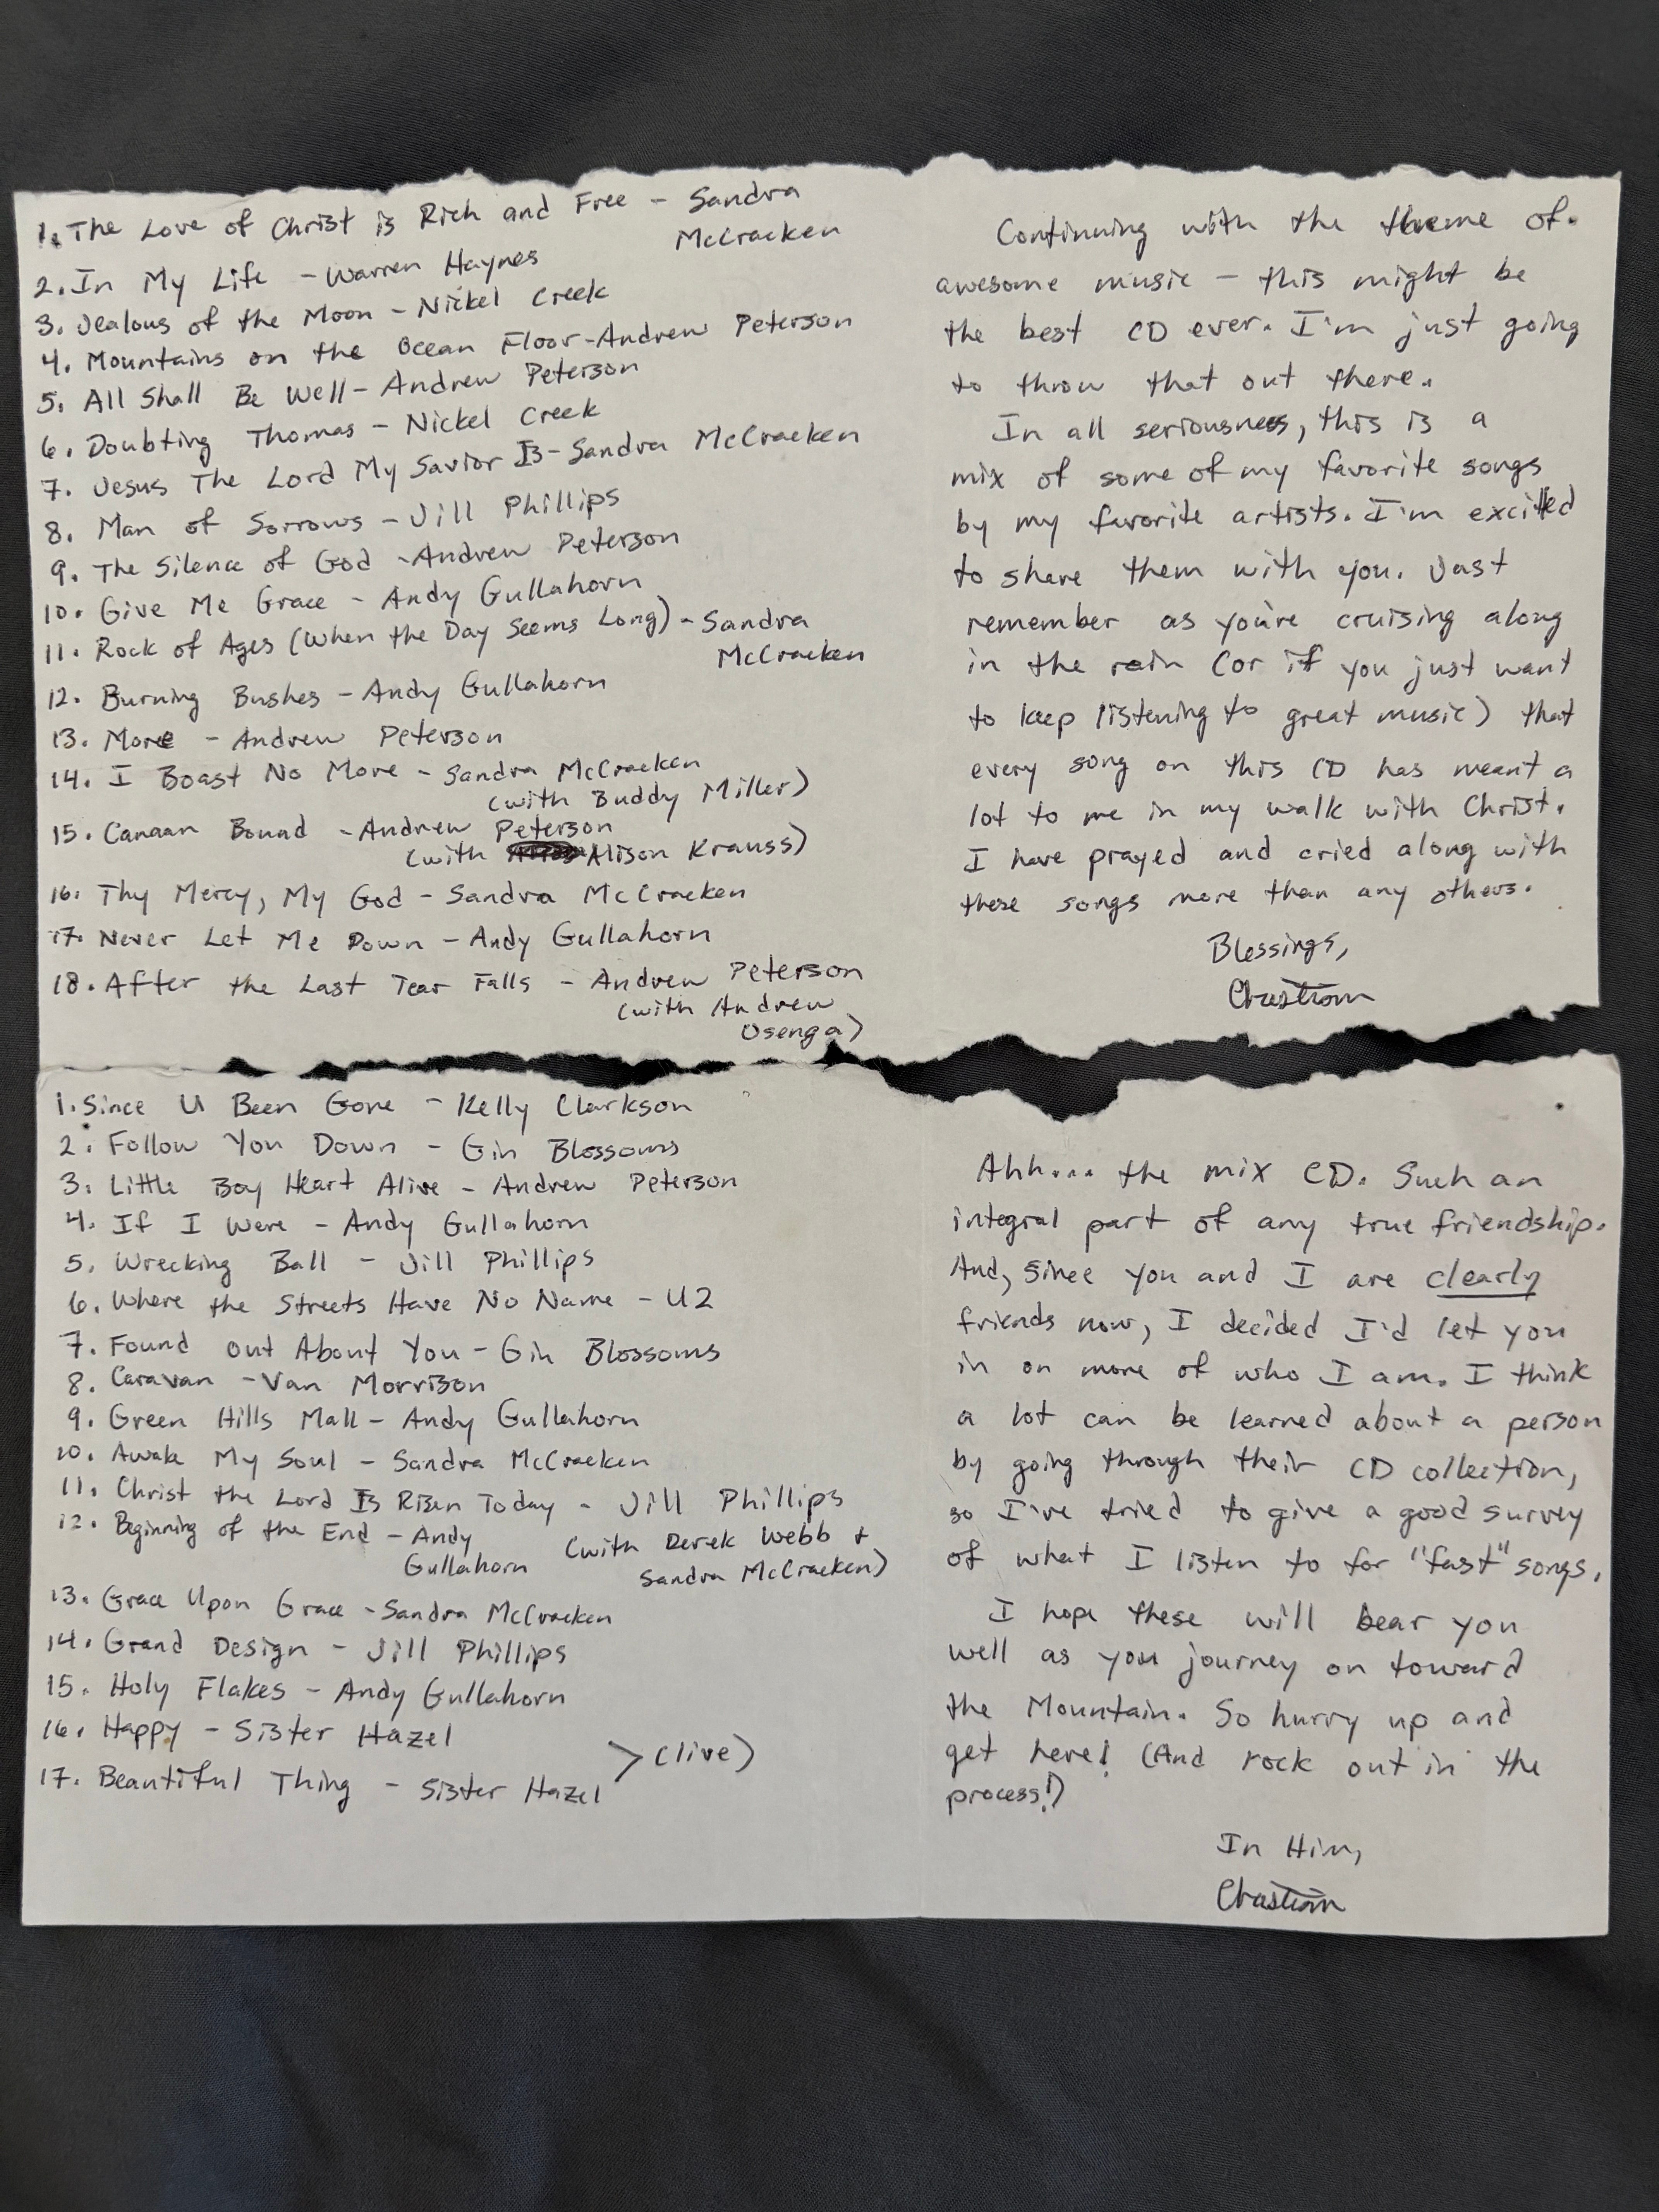 1. The Love of Christ is Rich and Free - Sandra
McCracken
2. In My Life - Warren Haynes
3. Jealous of the Moon - Nickel Creek
4. Mountains on the Ocean Floor - Andrew Peterson
5. All Shall Be Well - Andrew Peterson
6. Doubting Thomas - Nickel Creek
7. Jesus The Lord My Savior Is - Sandra McCracken
8. Man of Sorrows - Jill Phillips
9. The Silence of God - Andrew Peterson
10. Give Me Grace - Andy Gullahorn
11. Rock of Ages (When the Day Seems Long) - Sandra
McCracken
12. Burning Bushes - Andy Gullahorn
13. More - Andrew Peterson
14. I Boast No More - Sandra McCracken
(with Buddy Miller)
15. Canaan Bound - Andrew Peterson
(with Alison Krauss)
16. Thy Mercy, My God - Sandra McCracken
17. Never Let Me Down - Andy Gullahorn
18. After the Last Tear Falls - Andrew Peterson
(with Andrew
Osenga)
Continuing with the theme of
awesome music - this might be
the best CD ever. I'm just going
to throw that out there.
In all seriousness, this is a
mix of some of my favorite songs
by my favorite artists. I'm excited
to share them with you. Just
remember as you're cruising along
in the rain (or if you just want
to keep listening to great music) that
every song on this CD has meant a
lot to me in my walk with Christ.
I have prayed and cried along with
these songs more than any others.
Blessings,
1. Since U Been Gone - Kelly Clarkson
2. Follow You Down - Gin Blossoms
3. Little Boy Heart Alive - Andrew Peterson
4. If I Were - Andy Gullahorn
5. Wrecking Ball - Jill Phillips
6. Where the Streets Have No Name - U2
7. Found Out About You - Gin Blossoms
8. Caravan - Van Morrison
9. Green Hills Mall - Andy Gullahorn
10. Awake My Soul - Sandra McCracken
11. Christ the Lord Is Risen Today - Jill Phillips
12. Beginning of the End - Andy (with Derek Webb +
Gullahorn Sandra McCracken)
13. Grace Upon Grace - Sandra McCracken
14. Grand Design - Jill Phillips
15. Holy Flakes - Andy Gullahorn
16. Happy - Sister Hazel
> (live)
17. Beautiful Thing - Sister Hazel
Ahh... the mix CD. Such an
integral part of any true friendship.
And, since you and I are clearly
friends now, I decided I'd let you
in on more of who I am. I think
a lot can be learned about a person
by going through their CD collection,
so I've tried to give a good survey
of what I listen to for "fast" songs.
I hope these will bear you
well as you journey on toward
the Mountain. So hurry up and
get here! (And rock out in the
process!)
In Him,